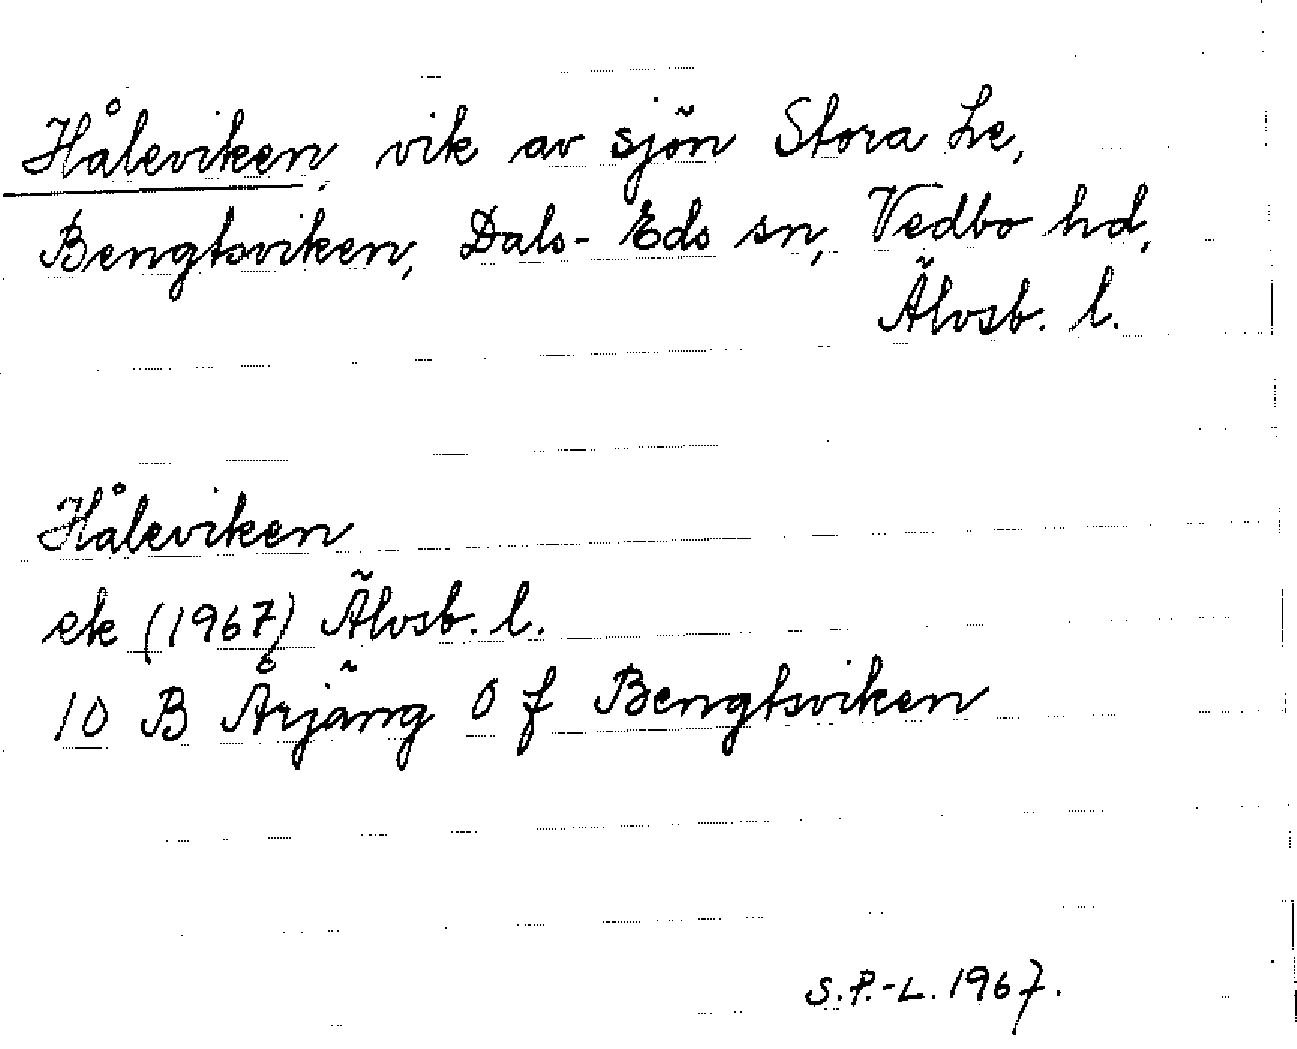 Håleviken, vik av sjön Stora Le,
Bengtsviken, Dals-Eds sn, Vedbo hd,
Älvsb. l.
Håleviken
ek (1967) Älvsb. l.
10 B Årjäng 0 f Bengtsviken
S.P.-L. 1967.